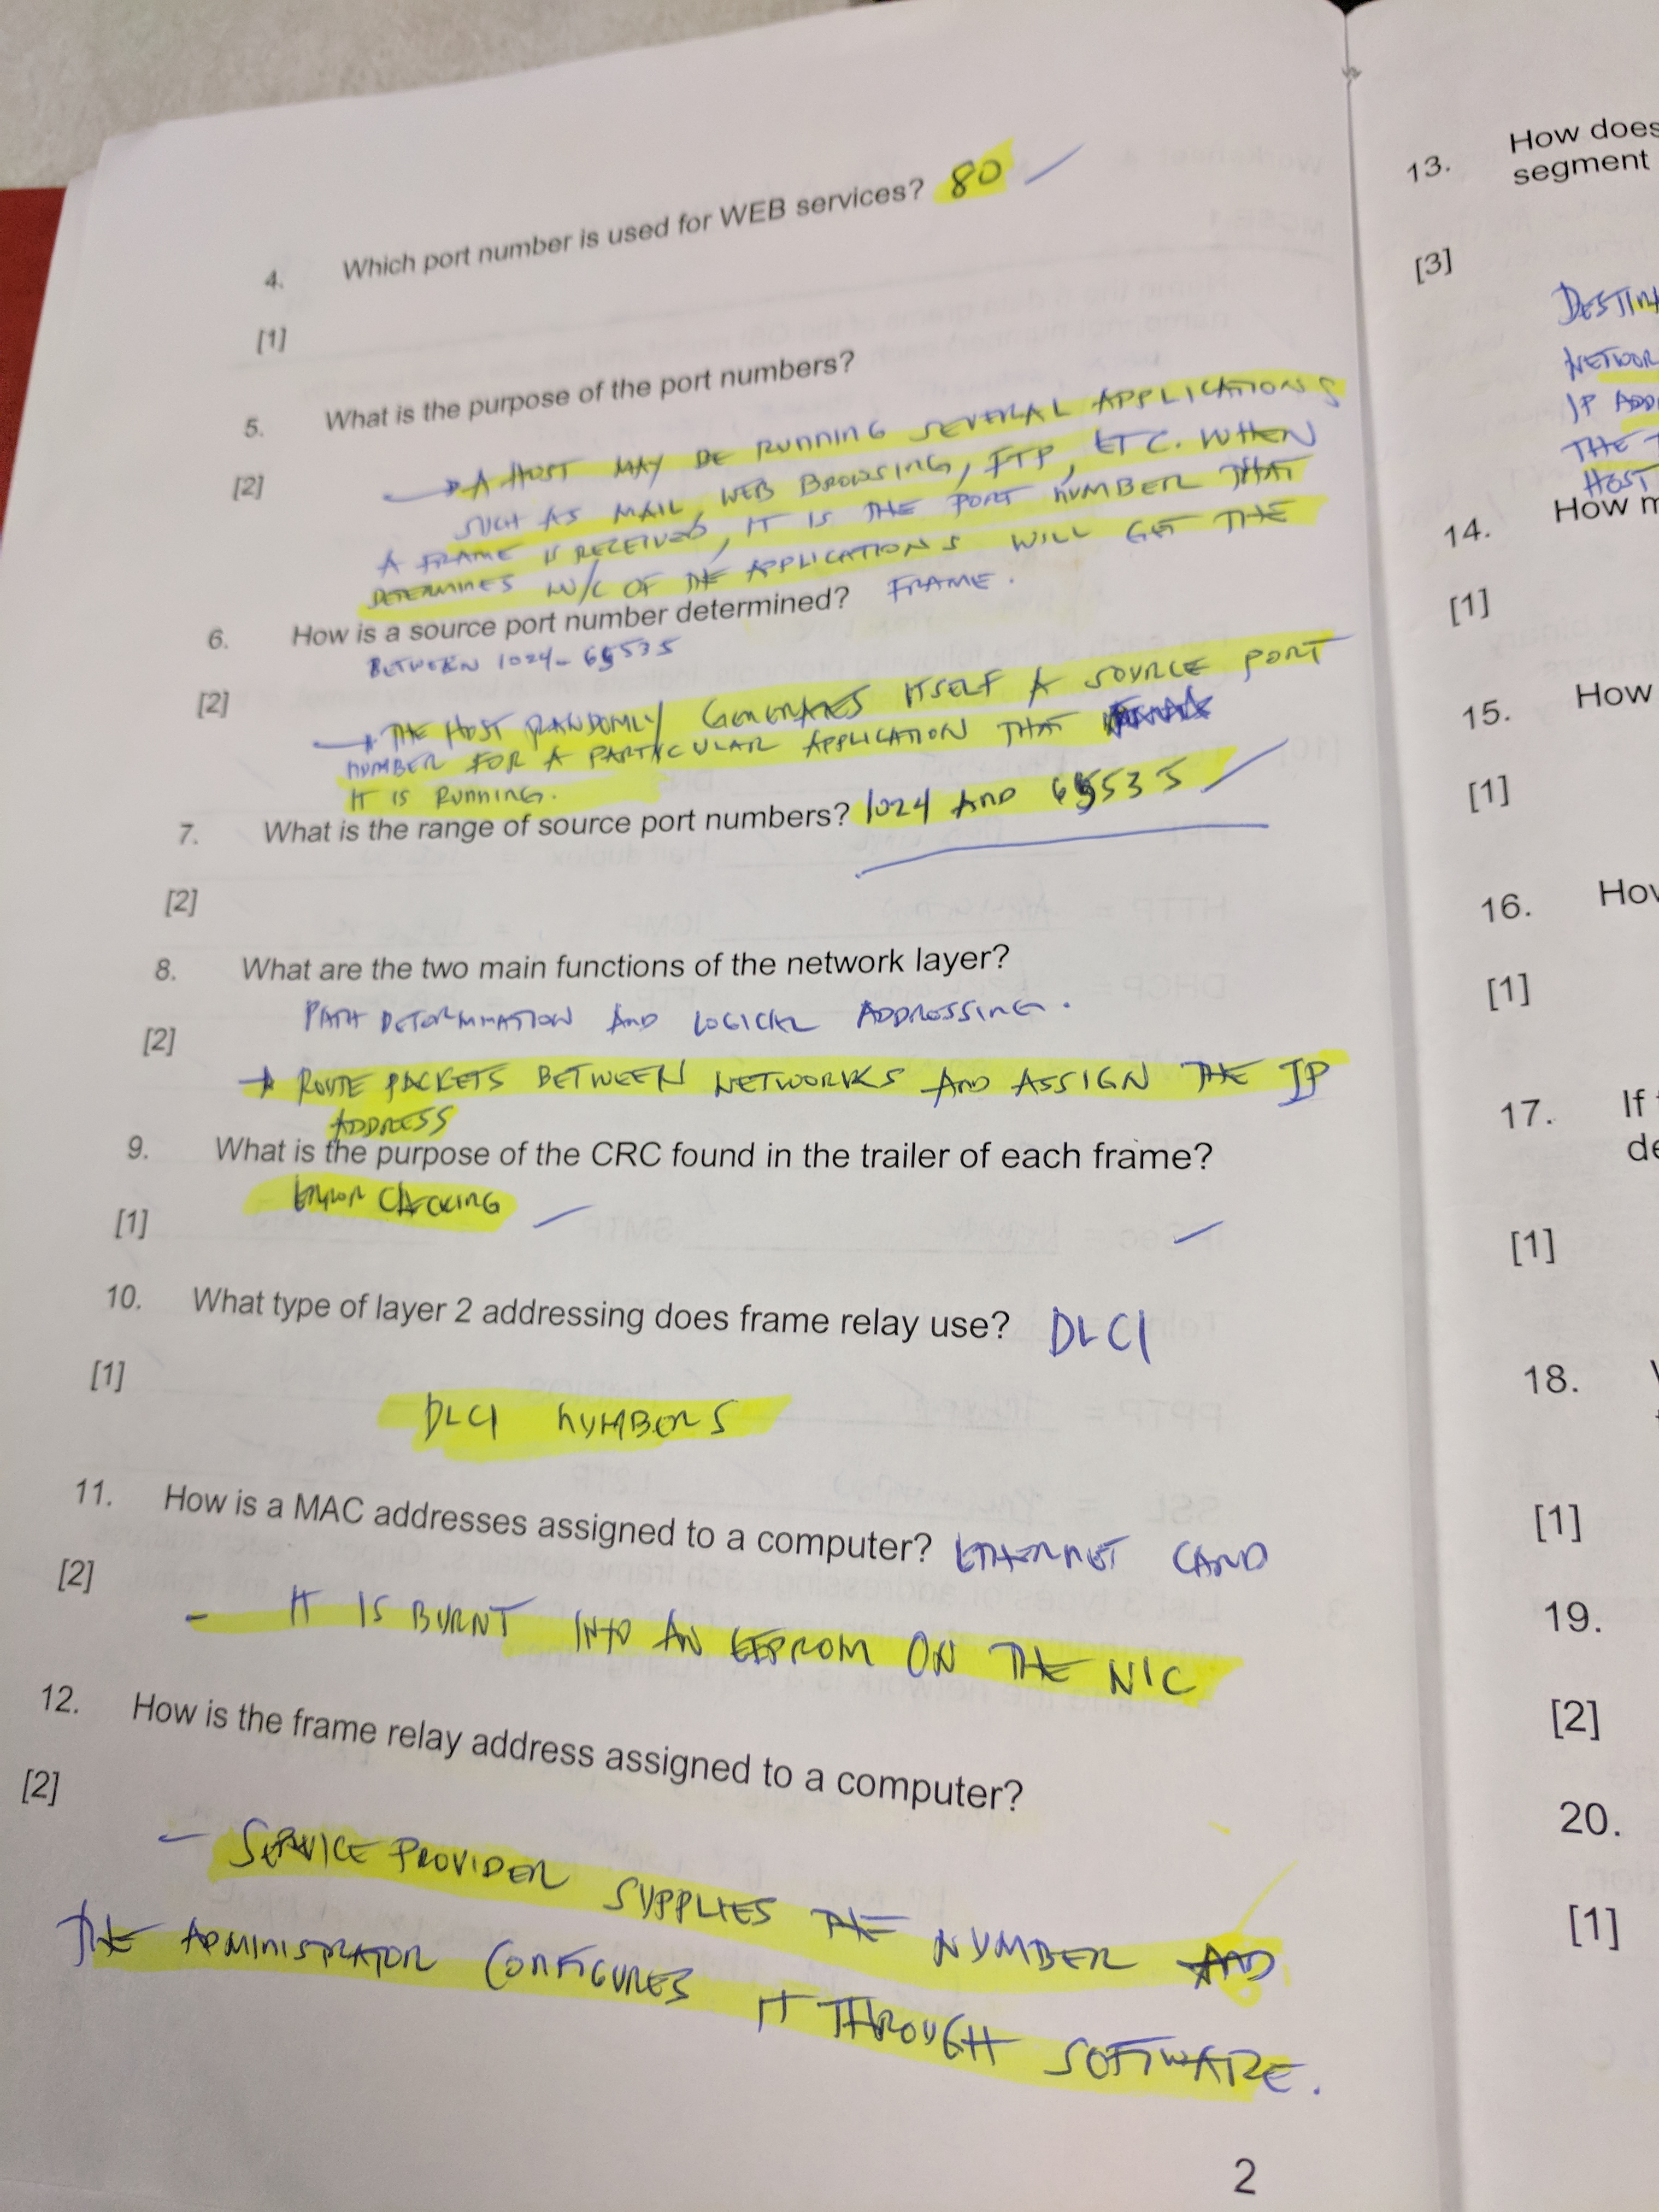 4. Which port number is used for WEB services? 80
[1]
5. What is the purpose of the port numbers?
[2]
A HOST MAY BE RUNNING SEVERAL APPLICATIONS
SUCH AS MAIL, WEB BROWSING, FTP, ETC. WHEN
A FRAME IS RECEIVED, IT IS THE PORT NUMBER THAT
DETERMINES W/C OF THE APPLICATIONS WILL GET THE
FRAME.
6. How is a source port number determined?
BETWEEN 1024-65535
[2]
THE HOST RANDOMLY GENERATES ITSELF A SOURCE PORT
NUMBER FOR A PARTICULAR APPLICATION THAT
IT IS RUNNING.
7. What is the range of source port numbers? 1024 AND 65535
[2]
8. What are the two main functions of the network layer?
PATH DETERMINATION AND LOGICAL ADDRESSING.
[2]
ROUTE PACKETS BETWEEN NETWORKS AND ASSIGN THE IP
ADDRESS
9. What is the purpose of the CRC found in the trailer of each frame?
ERROR CHECKING
[1]
10. What type of layer 2 addressing does frame relay use? DLCI
[1]
DLCI NUMBERS
11. How is a MAC addresses assigned to a computer? ETHERNET CARD
[2]
- IT IS BURNT INTO AN EEPROM ON THE NIC
12. How is the frame relay address assigned to a computer?
[2]
- SERVICE PROVIDER SUPPLIES THE NUMBER AND
THE ADMINISTRATOR CONFIGURES IT THROUGH SOFTWARE.
2
13. How does
segment
[3]
NETWOR
IP ADD
THE
HOST
14. How m
[1]
15. How
[1]
16. How
[1]
17. If
de
[1]
18.
[1]
19.
[2]
20.
[1]